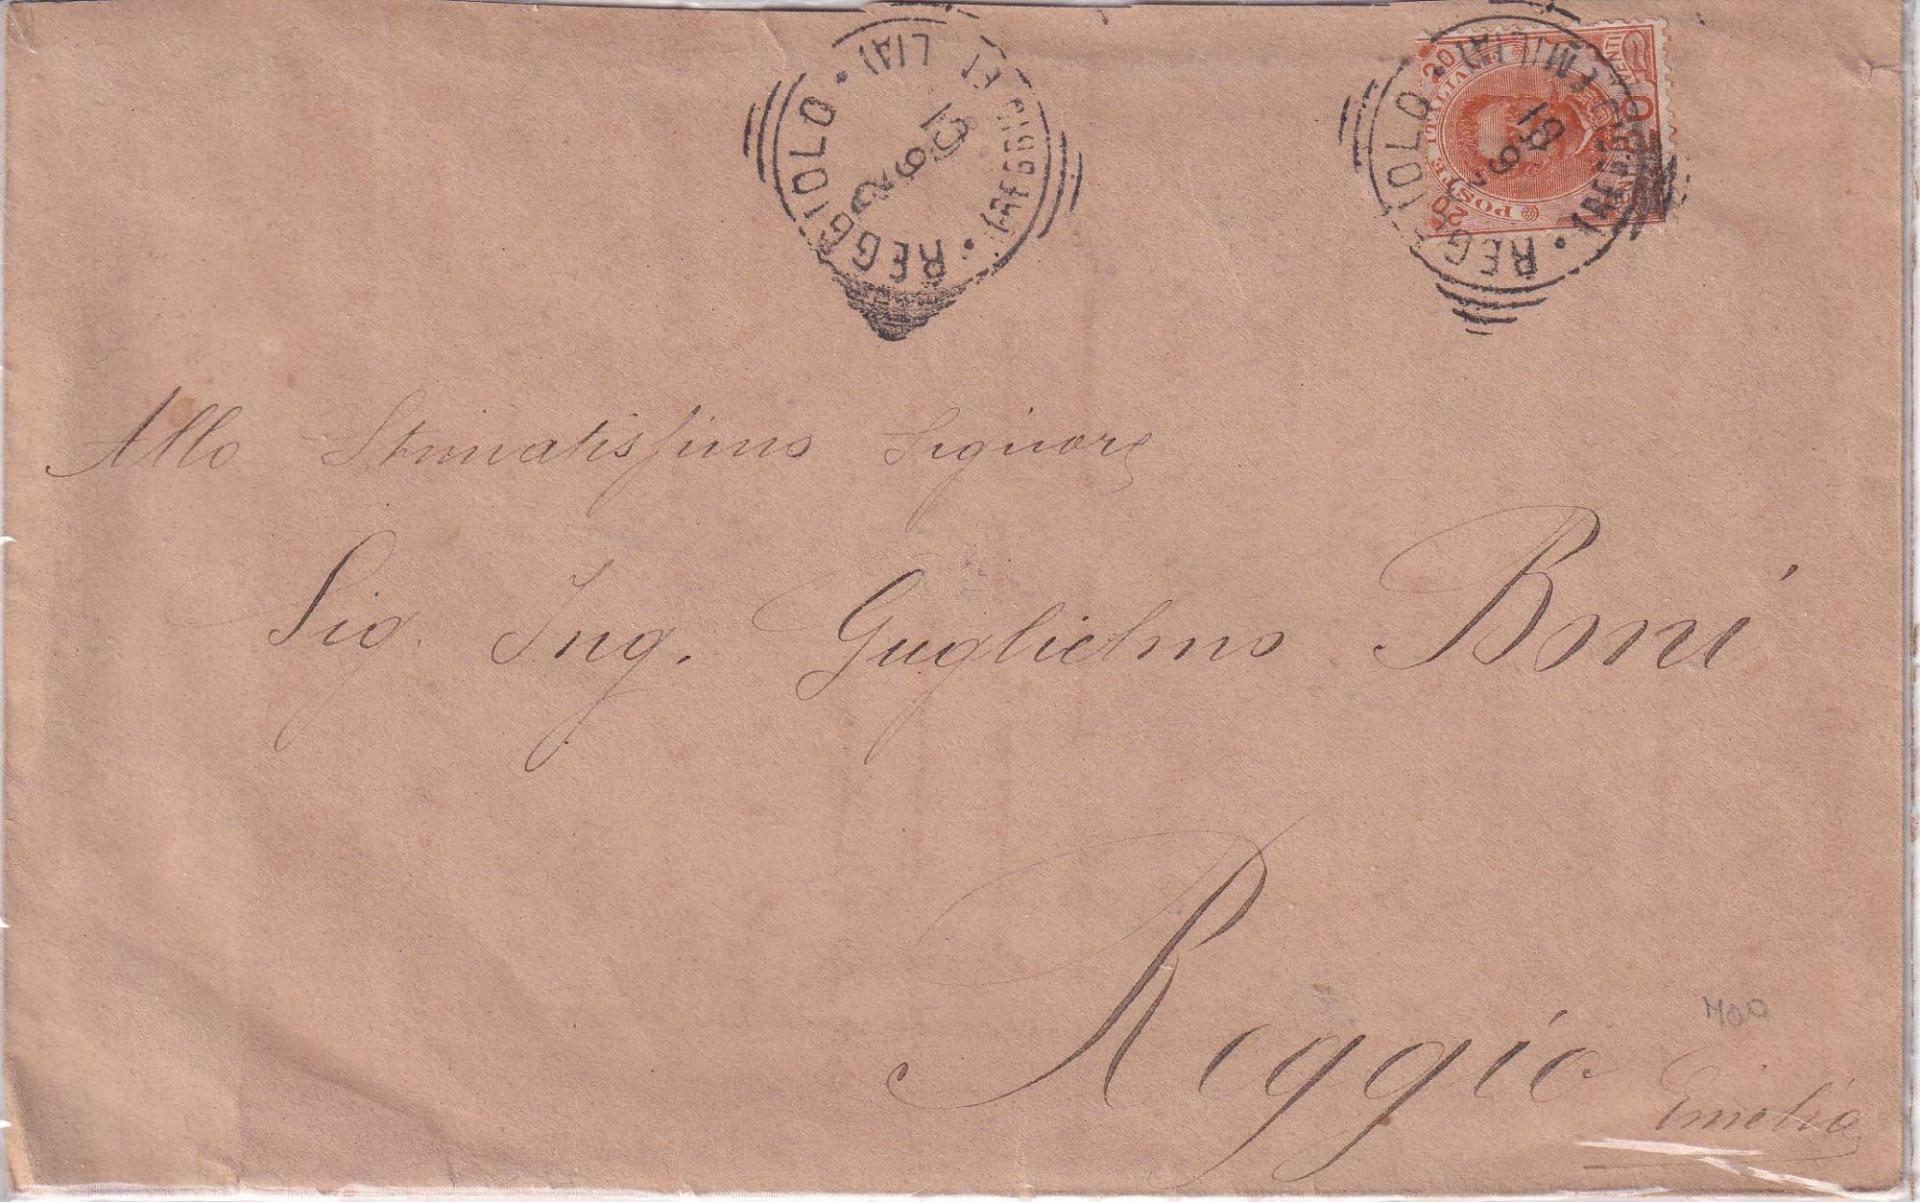 REGGIOLO
(REGGIO EMILIA)
REGGIOLO
(REGGIO EMILIA)
POSTE ITALIANE
20 20
Allo Stimatissimo Signore
Sig. Ing. Guglielmo Boni
Reggio
Emilia